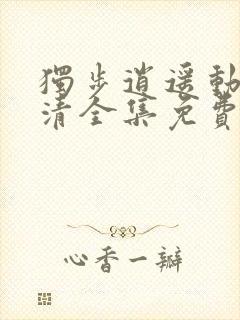 獨步逍遥動
清全集免費
心香一瓣